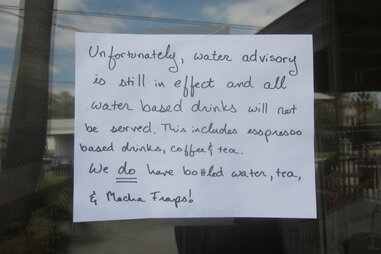 Unfortunately, water advisory
is still in effect and all
water based drinks will not
be served. This includes esspresso
based drinks, coffee & tea.
We do have bottled water, tea,
& Macha Fraps!